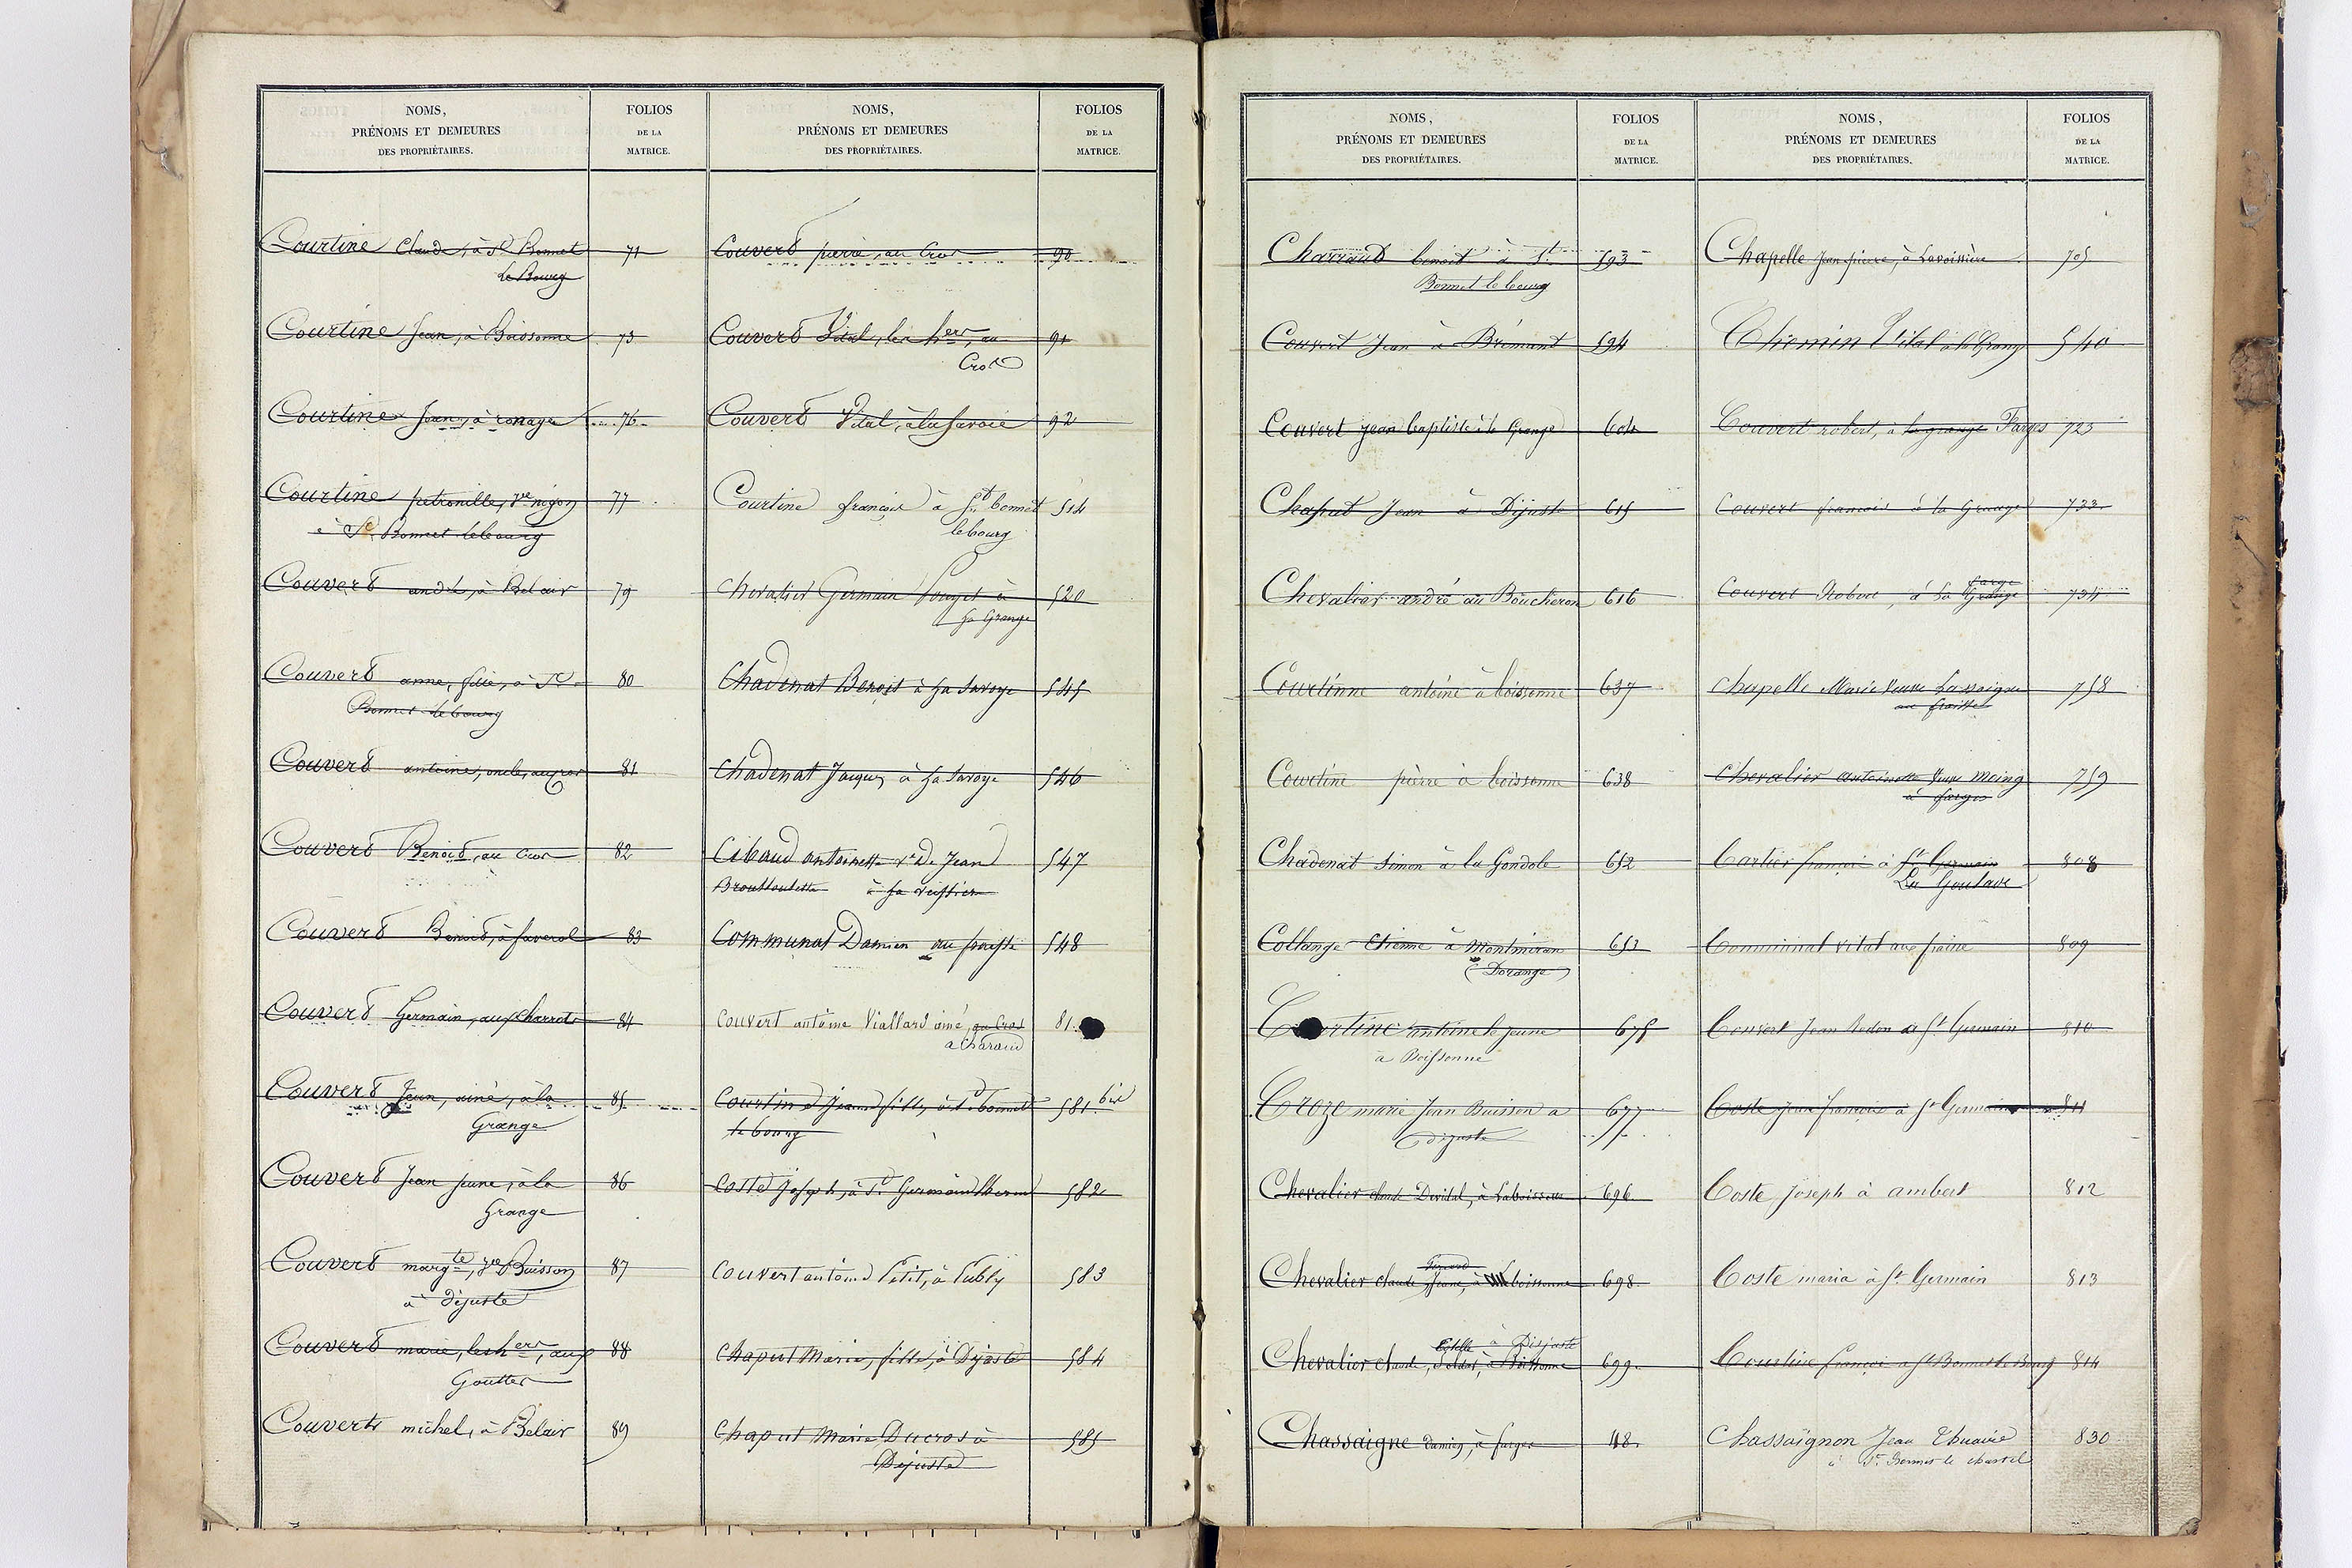 NOMS,
PRÉNOMS ET DEMEURES
DES PROPRIÉTAIRES.
FOLIOS
DE LA
MATRICE.
Courtine Claude, à St Bonnet 71
Le Bourg
Courtine Jean, à Boissonne 73
Courtine Jean, à 76
Courtine petronille, ve nigon 77
à St Bonnet lebourg
Couvert andré, à Belair 79
Couvert anne, fille, à St 80
Bonnet lebourg
Couvert antoine, oncle, au cros 81
Couvert Benoit, au Cros 82
Couvert Benoit, à faverol 83
Couvert Germain, aux Charrots 84
Couvert Jean, ainé, à la 85
Grange
Couvert Jean jeune, à la 86
Grange
Couvert margte, ve Buisson 87
à Dijuste
Couvert marie, les hers, aux 88
Goutter
Couvert michel, à Belair 89
NOMS,
PRÉNOMS ET DEMEURES
DES PROPRIÉTAIRES.
FOLIOS
DE LA
MATRICE.
Couvert pierre, au Cros 90
Couvert Vital, les hers, au 91
Cros
Couvert Vital, à la favoie 92
Courtine françois à St bonnet 514
lebourg
Chevalier Germain Pouget à 520
La Grange
Chadenat Benoit à La Savoye 545
Chadenat Jacques à La Savoye 546
Cibaud antoinette ve De Jean 547
à La
Communat Damien au fraisse 548
Couvert antoine Viallard ainé, au Cros 81.
a Charaud
Courtine Jeanne fille, à St bonnet 581 bis
le bourg
Coste Joseph, à St Germain lherm 582
Couvert antoine Petit, à Tubly 583
Chaput Marie, fille, à Dijuste 584
Chaput Marie Ducros à 585
Dijuste
NOMS,
PRÉNOMS ET DEMEURES
DES PROPRIÉTAIRES.
FOLIOS
DE LA
MATRICE.
Charraud benoit à St 593
Bonnet le bourg
Couvert Jean à Brémant 594
Couvert Jean baptiste à la Grange 604
Chaput Jean à Dijuste 615
Chevalier andré au Boucheron 616
Courtinne antoine à boissonne 637
Courtine pierre à boissonne 638
Chadenat Simon à la Gondole 652
Collange Etienne à Montmiran 653
(Dorange)
Courtine antoine le jeune 675
à Boissonne
Croze marie Jean Buisson a 677
dijuste
Chevalier claude Devidal, à Laboissonne 696
Chevalier claude Jeune, à boissonne 698
Estelle à Disjuste
Chevalier claude, Soldat, à Boissonne 699
Chassaigne Damien, à farges 48
NOMS,
PRÉNOMS ET DEMEURES
DES PROPRIÉTAIRES.
FOLIOS
DE LA
MATRICE.
Chapelle Jean pierre, à Lavoissière 705
Chemin Vital à la Grange 540
Couvert robert, à la grange Farges 723
Couvert francois à la Grange 733
farge
Couvert Robert, à La Grange 734
Chapelle Marie Veuve Lassaigne 758
au fraisse
Chevalier antoinette Veuve Moing 759
à farges
Cartier françois à St Germain 808
La Goutave
Communat vital au fraisse 809
Couvert Jean Redon a St Germain 810
Coste Jean françois à St Germain 811
Coste Joseph à ambert 812
Coste maria à St Germain 813
Courtine françois a St Bonnet le Bourg 814
Chassaignon Jean Thuaire 830
à St Bonnet le chastel